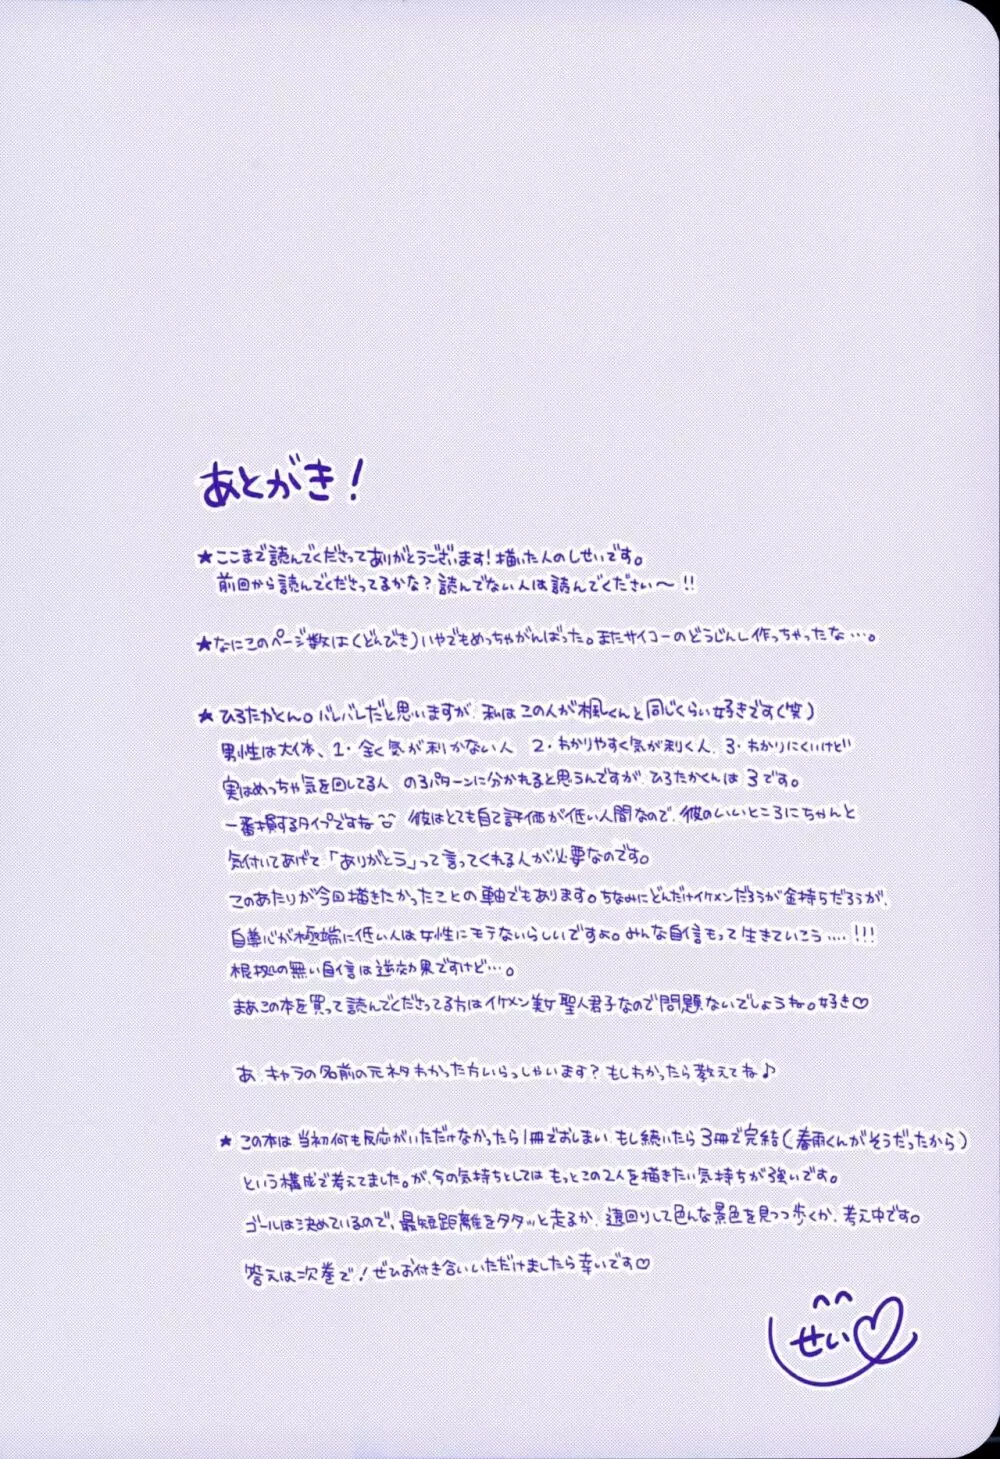 あとがき！
★ここまで読んでくださってありがとうございます！描いた人のしせいです。
前回から読んでくださってるかな？読んでない人は読んでください〜!!
★なにこのページ数は(どんびき)いやでもめっちゃがんばった。またサイコーのどうじんし作っちゃったな…。
★ひろたかくん。バレバレだと思いますが、私はこの人が楓くんと同じくらい好きです(笑)
男性は大体、1・全く気が利かない人 2・わかりやすく気が利く人、3・わかりにくいけど
実はめっちゃ気を回してる人 の3パターンに分かれると思うんですが、ひろたかくんは3です。
一番損するタイプですね 彼はとても自己評価が低い人間なので、彼のいいところにちゃんと
気付いてあげて「ありがとう」って言ってくれる人が必要なのです。
このあたりが今回描きたかったことの軸でもあります。ちなみにどんだけイケメンだろうが金持ちだろうが、
自尊心が極端に低い人は女性にモテないらしいですよ。みんな自信もって生きていこう…!!!
根拠の無い自信は逆効果ですけど…。
まあこの本を買って読んでくださってる方はイケメン美女聖人君子なので問題ないでしょうね。好き♡
あ、キャラの名前の元ネタわかった方いらっしゃいます？もしわかったら教えてね♪
★この本は当初何も反応がいただけなかったら1冊でおしまい、もし続いたら3冊で完結(春雨くんがそうだったから)
という構成で考えてました。が、今の気持ちとしてはもっとこの2人を描きたい気持ちが強いです。
ゴールは決めているので、最短距離をタタッと走るか、遠回りして色んな景色を見つつ歩くか、考え中です。
答えは次巻で！ぜひお付き合いいただけましたら幸いです♡
せい♡